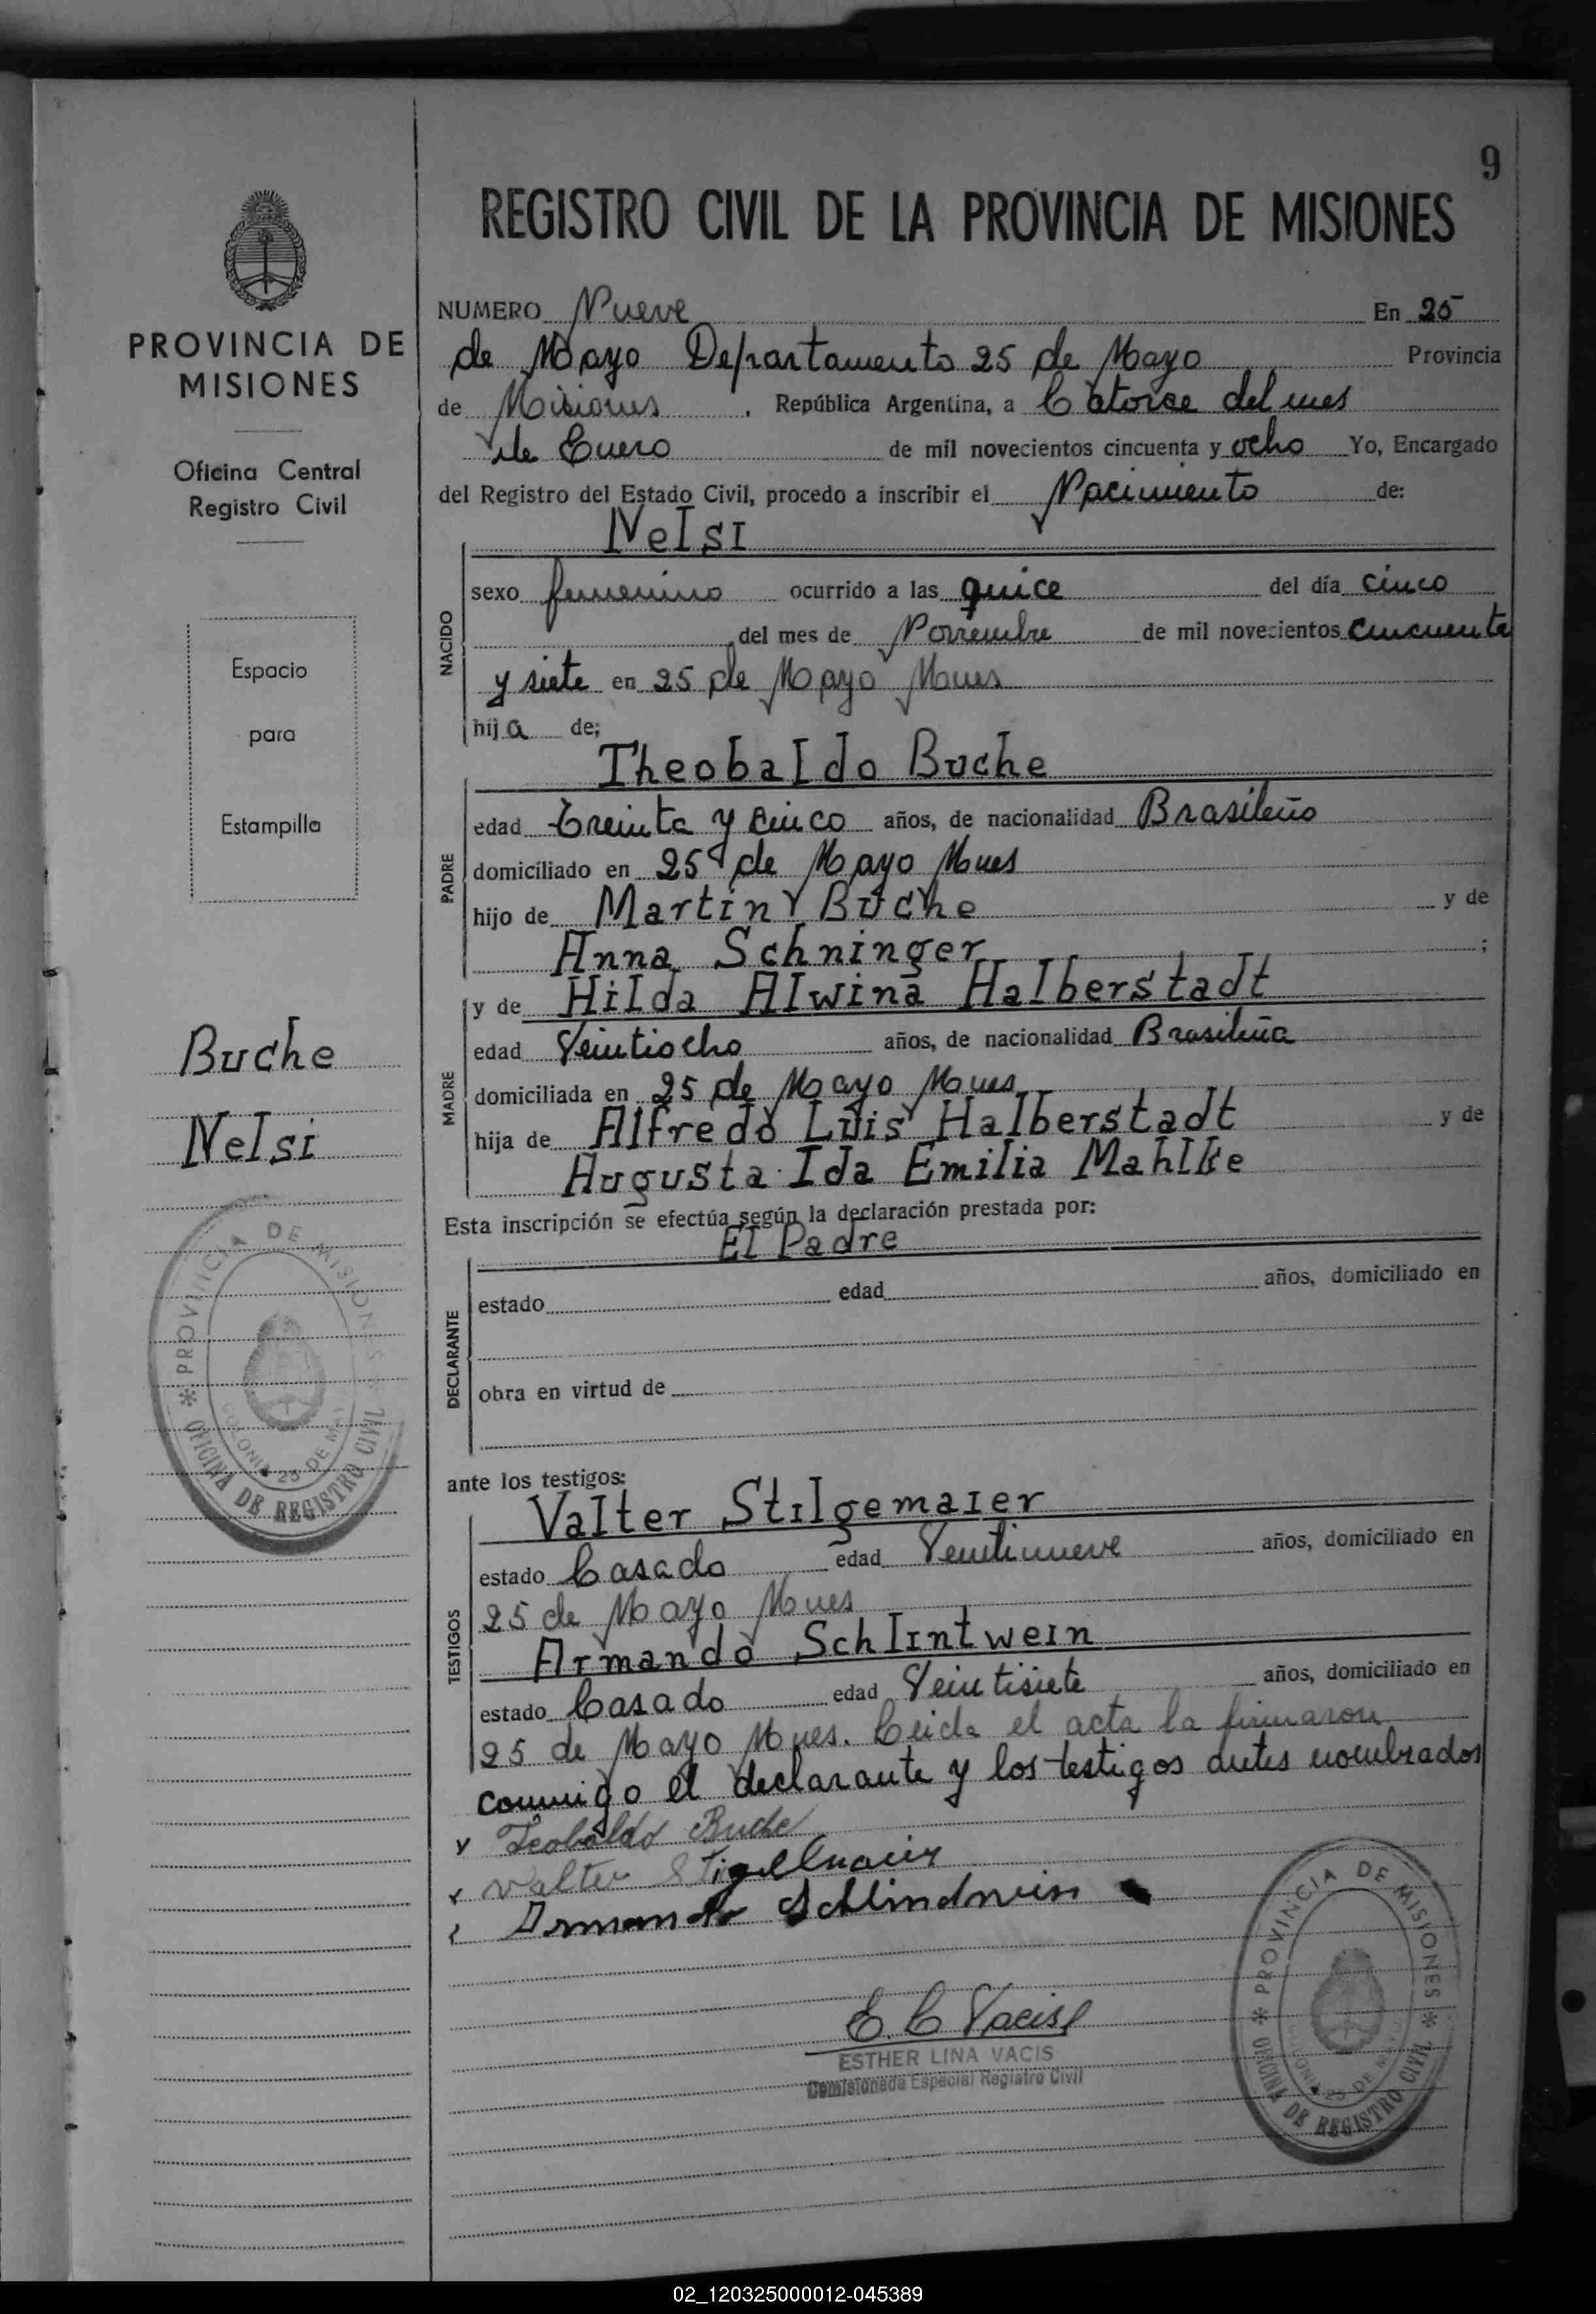 9
REGISTRO CIVIL DE LA PROVINCIA DE MISIONES
PROVINCIA DE
MISIONES
Oficina Central
Registro Civil
Espacio
para
Estampilla
Buche
Nelsi
PROVINCIA DE MISIONES
COLONIA 25 DE MAYO
OFICINA DE REGISTRO CIVIL
NUMERO Nueve En 25
de Mayo Departamento 25 de Mayo Provincia
de Misiones, República Argentina, a Catorce del mes
de Enero de mil novecientos cincuenta y ocho Yo, Encargado
del Registro del Estado Civil, procedo a inscribir el Nacimiento de:
NACIDO
Nelsi
sexo femenino ocurrido a las quice del día cinco
del mes de Noviembre de mil novecientos cincuenta
y siete en 25 de Mayo Mnes
hija de;
PADRE
Theobaldo Buche
edad Treinta y cinco años, de nacionalidad Brasileño
domiciliado en 25 de Mayo Mnes
hijo de Martin Buche y de
Anna Schninger ;
MADRE
y de Hilda Alwina Halberstadt
edad Veintiocho años, de nacionalidad Brasileña
domiciliada en 25 de Mayo Mnes
hija de Alfredo Luis Halberstadt y de
Augusta Ida Emilia Mahlke
Esta inscripción se efectúa según la declaración prestada por:
DECLARANTE
El Padre
estado edad años, domiciliado en
obra en virtud de
ante los testigos:
TESTIGOS
Valter Stilgemaier
estado Casado edad Veintinueve años, domiciliado en
25 de Mayo Mnes
Armando Schlintwein
estado Casado edad Veintisiete años, domiciliado en
25 de Mayo Mnes. Leida el acta la firmaron
conmigo el declarante y los testigos antes nombrados
Teobaldo Buche
Valter
Armando Schlindwein
E. L. Vacis
ESTHER LINA VACIS
Comisionada Especial Registro Civil
PROVINCIA DE MISIONES
COLONIA 25 DE MAYO
OFICINA DE REGISTRO CIVIL
02_120325000012-045389